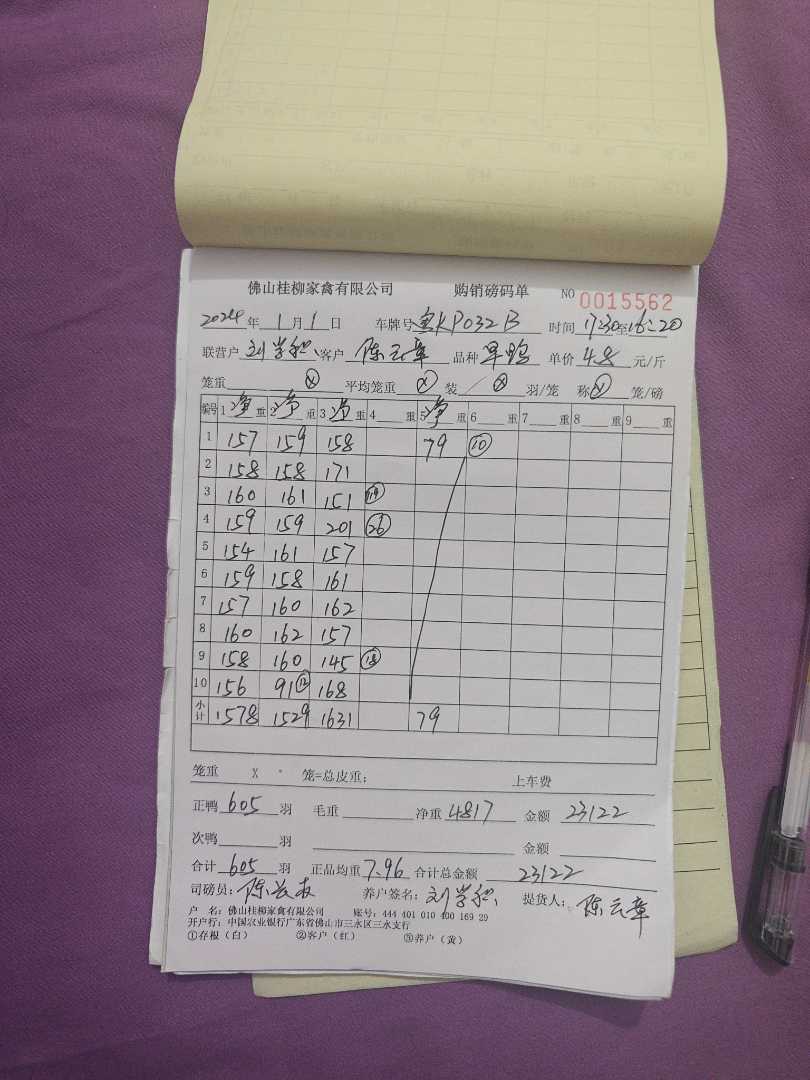 佛山桂柳家禽有限公司 购销磅码单 NO 0015562
2024年 1月 1日 车牌号 KP032B 时间 17:30至16:20
联营户 刘学积 客户 陈云章 品种 旱鸭 单价 4.8 元/斤
笼重 ⓧ 平均笼重 ⓧ 装 / ⓧ 羽/笼 称 ⓧ 笼/磅
编号 1净重 2净重 3净重 4重 5净重 6重 7重 8重 9重
1 157 159 158 79 ⑩
2 158 158 171
3 160 161 151 ⑲
4 159 159 201 ㉖
5 154 161 157
6 159 158 161
7 157 160 162
8 160 162 157
9 158 160 145 ⑱
10 156 91 ⑫ 168
小计 1578 1529 1631 79
笼重 X 笼=总皮重; 上车费
正鸭 605 羽 毛重 净重 4817 金额 23122
次鸭 羽 金额
合计 605 羽 正品均重 7.96 合计总金额 23122
司磅员: 陈 养户签名: 刘学积 提货人: 陈云章
户 名: 佛山桂柳家禽有限公司 账号: 444 401 010 400 169 29
开户行: 中国农业银行广东省佛山市三水区三水支行
①存根(白) ②客户(红) ③养户(黄)